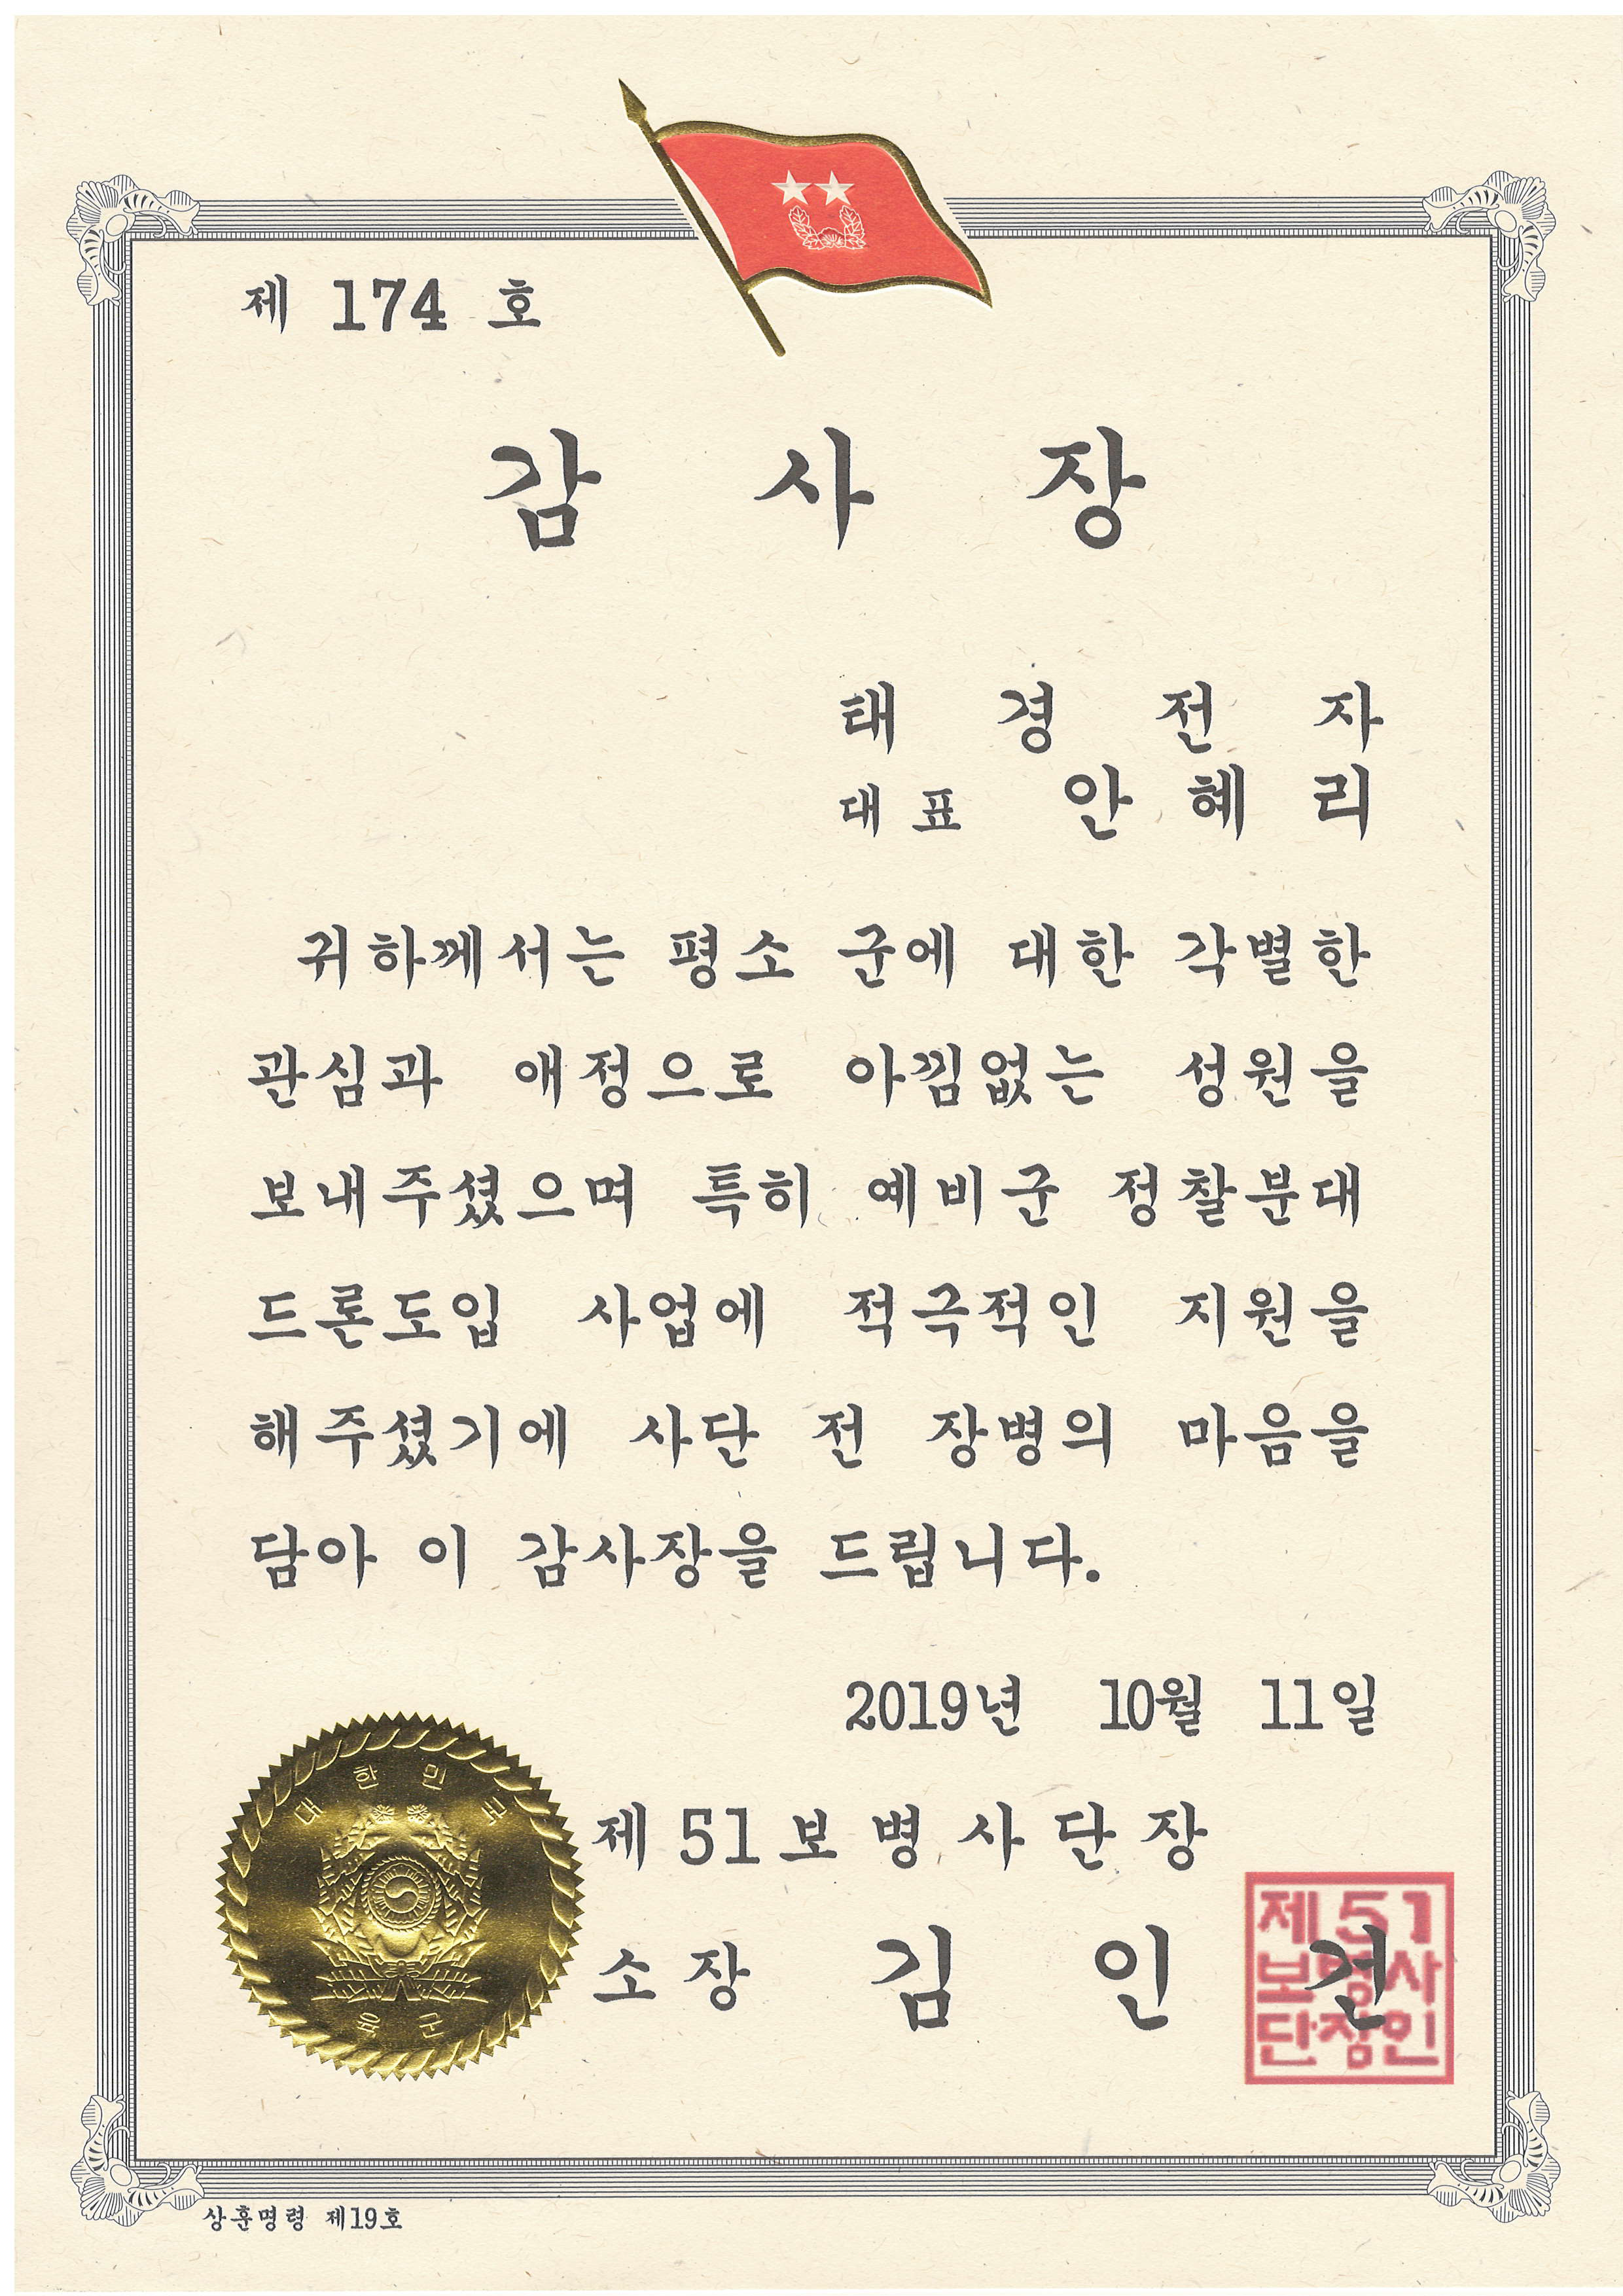 제 174 호
감 사 장
태 경 전 자
대표 안 혜 리
귀하께서는 평소 군에 대한 각별한
관심과 애정으로 아낌없는 성원을
보내주셨으며 특히 예비군 정찰분대
드론도입 사업에 적극적인 지원을
해주셨기에 사단 전 장병의 마음을
담아 이 감사장을 드립니다.
2019년 10월 11일
제51보병사단장
소장 김 인 건
제51
보병사
단장인
대한민국
육군
상훈명령 제19호